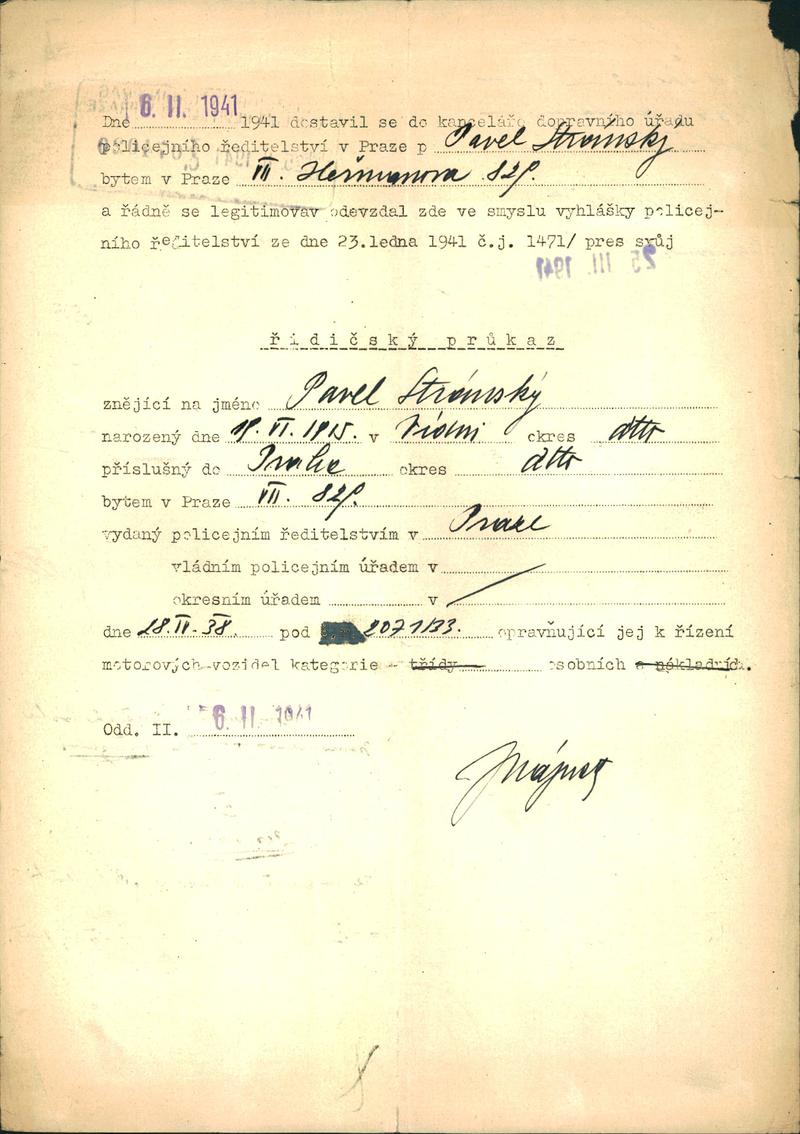 6. II. 1941
Dne 1941 dostavil se do kanceláře dopravního úřadu
policejního ředitelství v Praze p Pavel Stránský
bytem v Praze VII. Heřmanova
a řádně se legitimovav odevzdal zde ve smyslu vyhlášky policej-
ního ředitelství ze dne 23.ledna 1941 č.j. 1471/ pres svůj
25 III. 1941
řidičský průkaz
znějící na jméno Pavel Stránský
narozený dne v Vídni okres dtto
příslušný do Prahe okres dtto
bytem v Praze VII.
vydaný policejním ředitelstvím v Praze
vládním policejním úřadem v
okresním úřadem v
dne pod 2071/33. opravňující jej k řízení
motorových vozidel kategorie - třídy osobních a nákladních.
Odd. II. 6. II. 1941